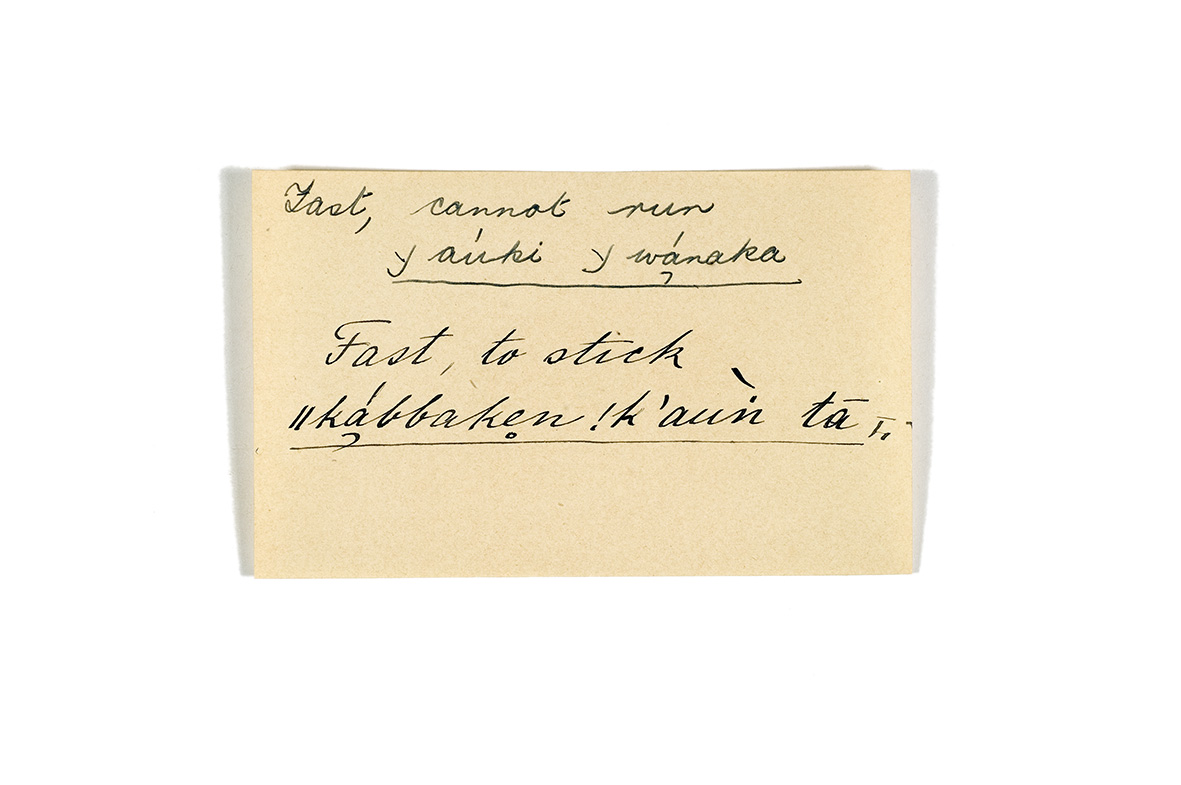 Fast, cannot run
ɣ aúki ɣ wá̡naka
Fast, to stick
ǁká̡bbake̥n !k'auǹ̇ tā I,,